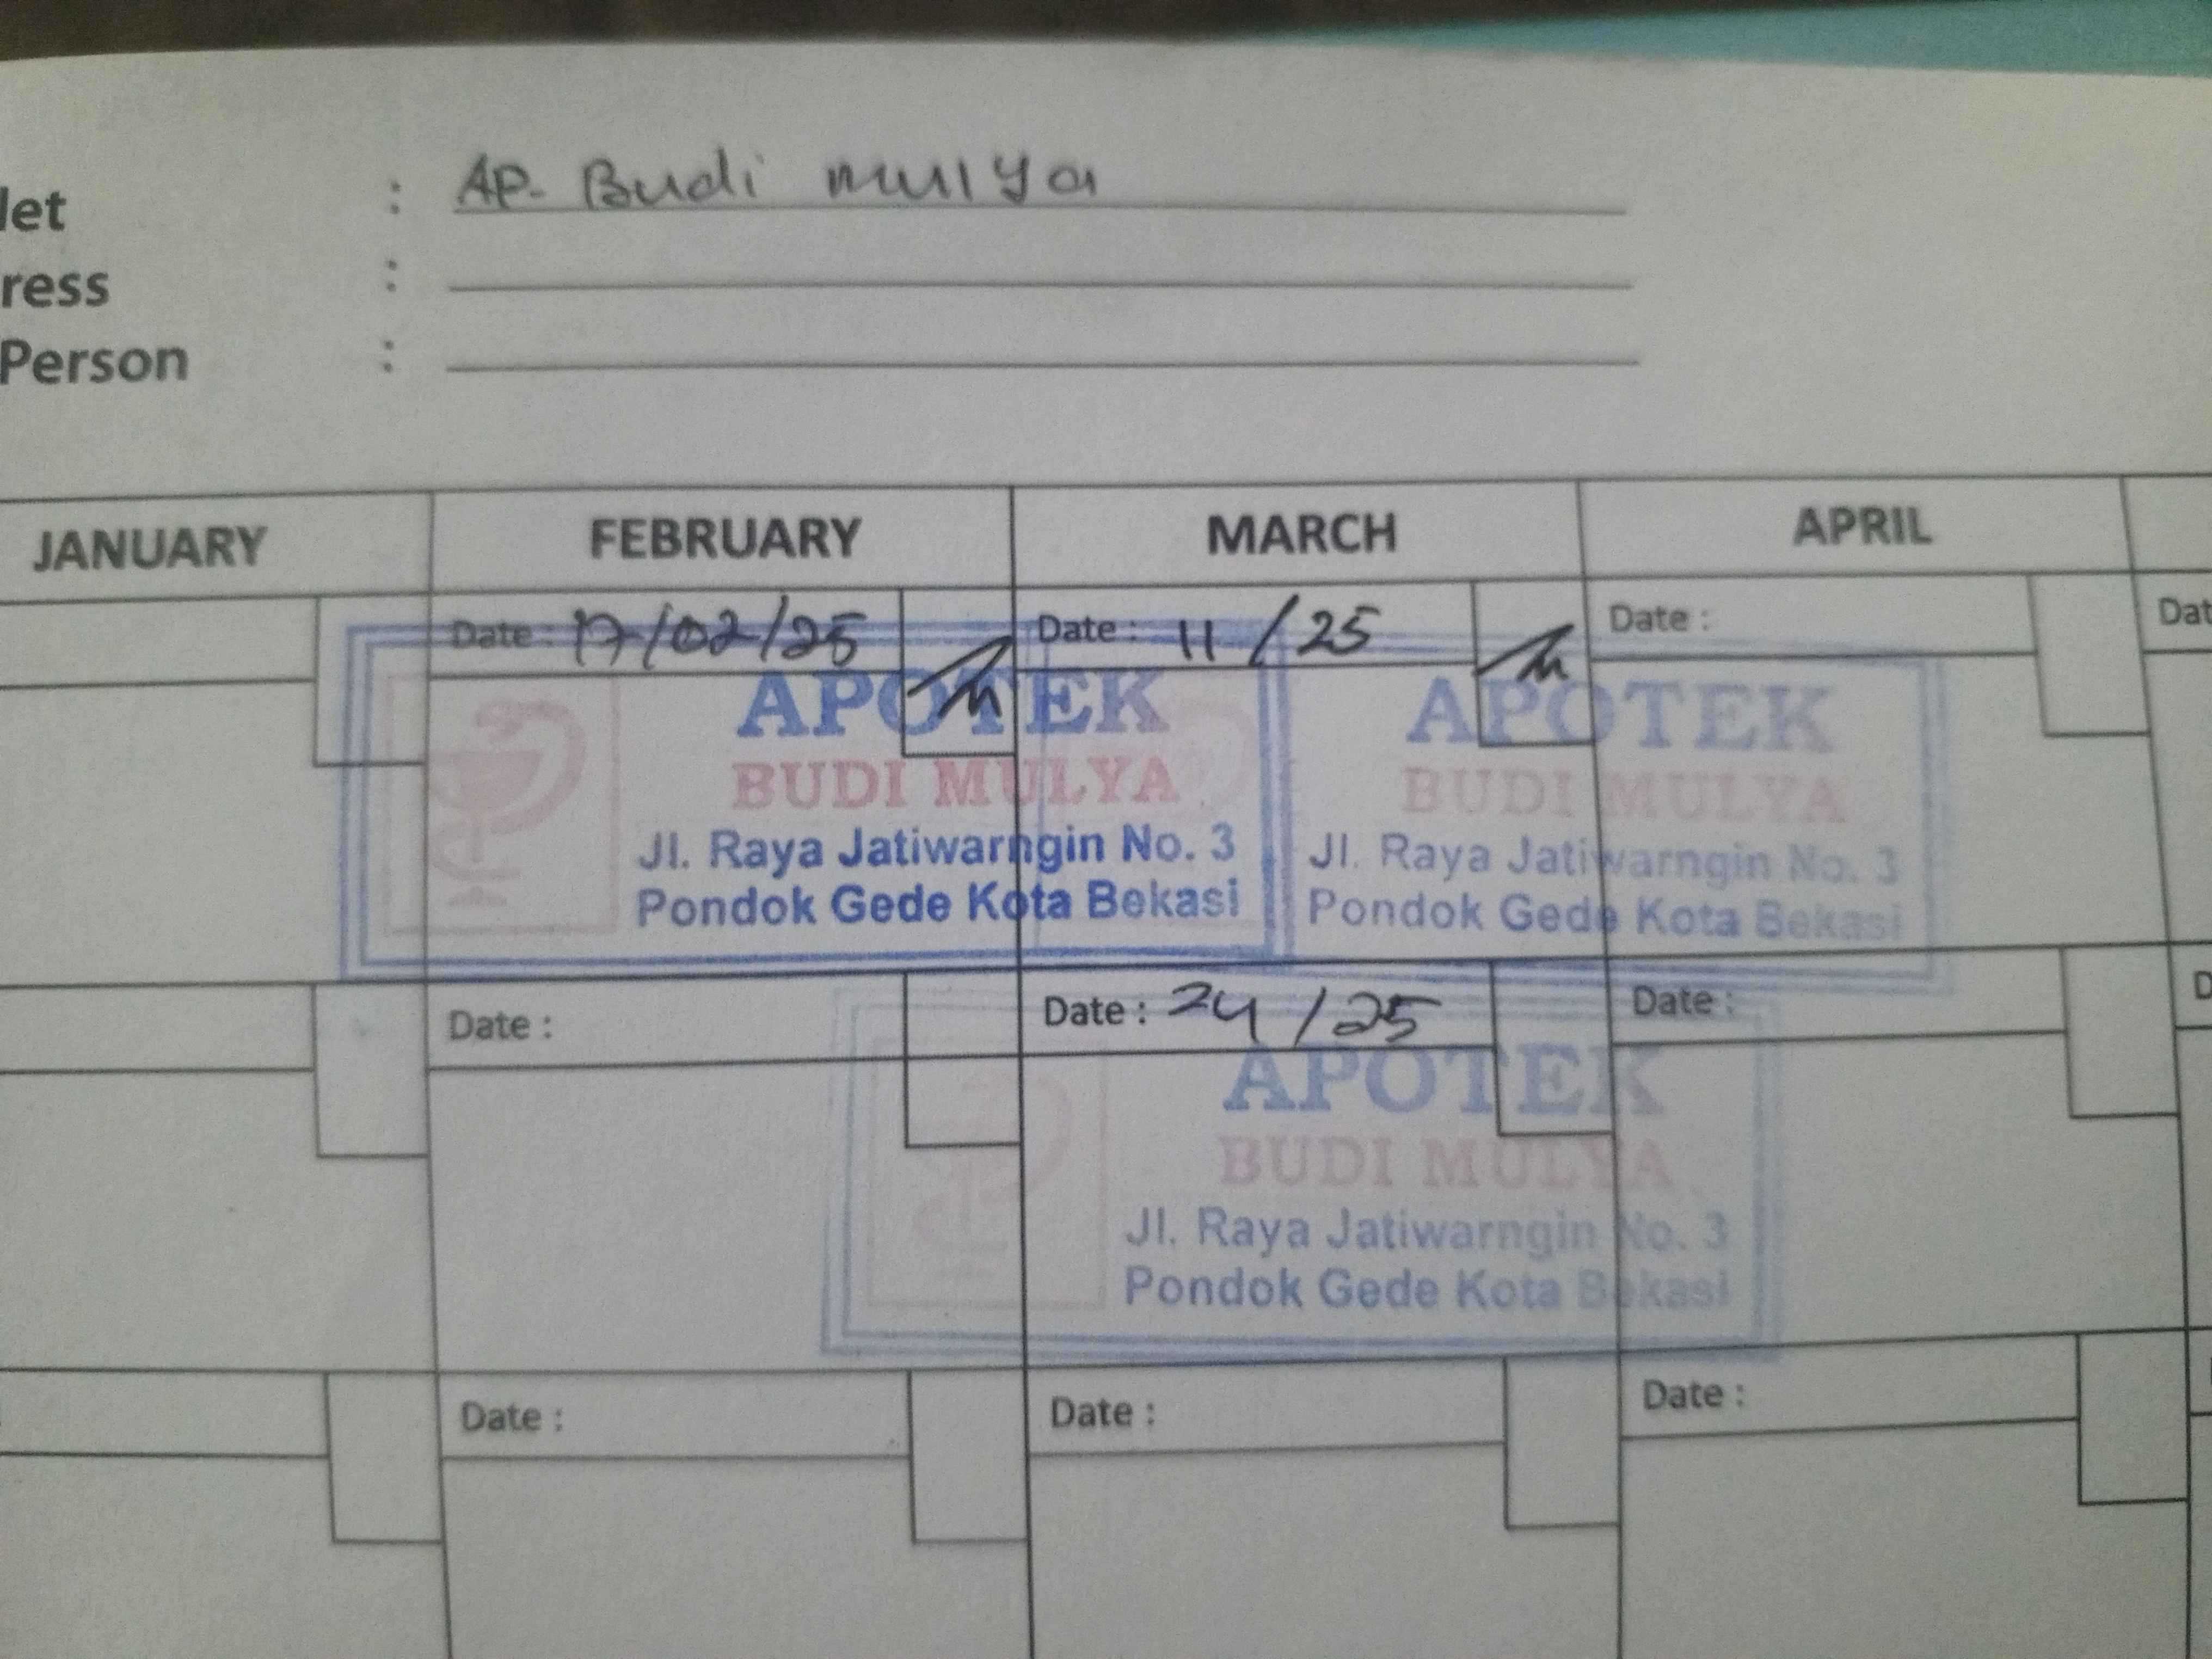 let : AP. Budi mulya
ress :
Person :
JANUARY FEBRUARY MARCH APRIL
Date : 17/02/25 Date : 11 / 25 Date : Dat
APOTEK APOTEK
BUDI MULYA BUDI MULYA
Jl. Raya Jatiwarngin No. 3 Jl. Raya Jatiwarngin No. 3
Pondok Gede Kota Bekasi Pondok Gede Kota Bekasi
Date : Date : 24 / 25 Date : D
APOTEK
BUDI MULYA
Jl. Raya Jatiwarngin No. 3
Pondok Gede Kota Bekasi
Date : Date : Date :